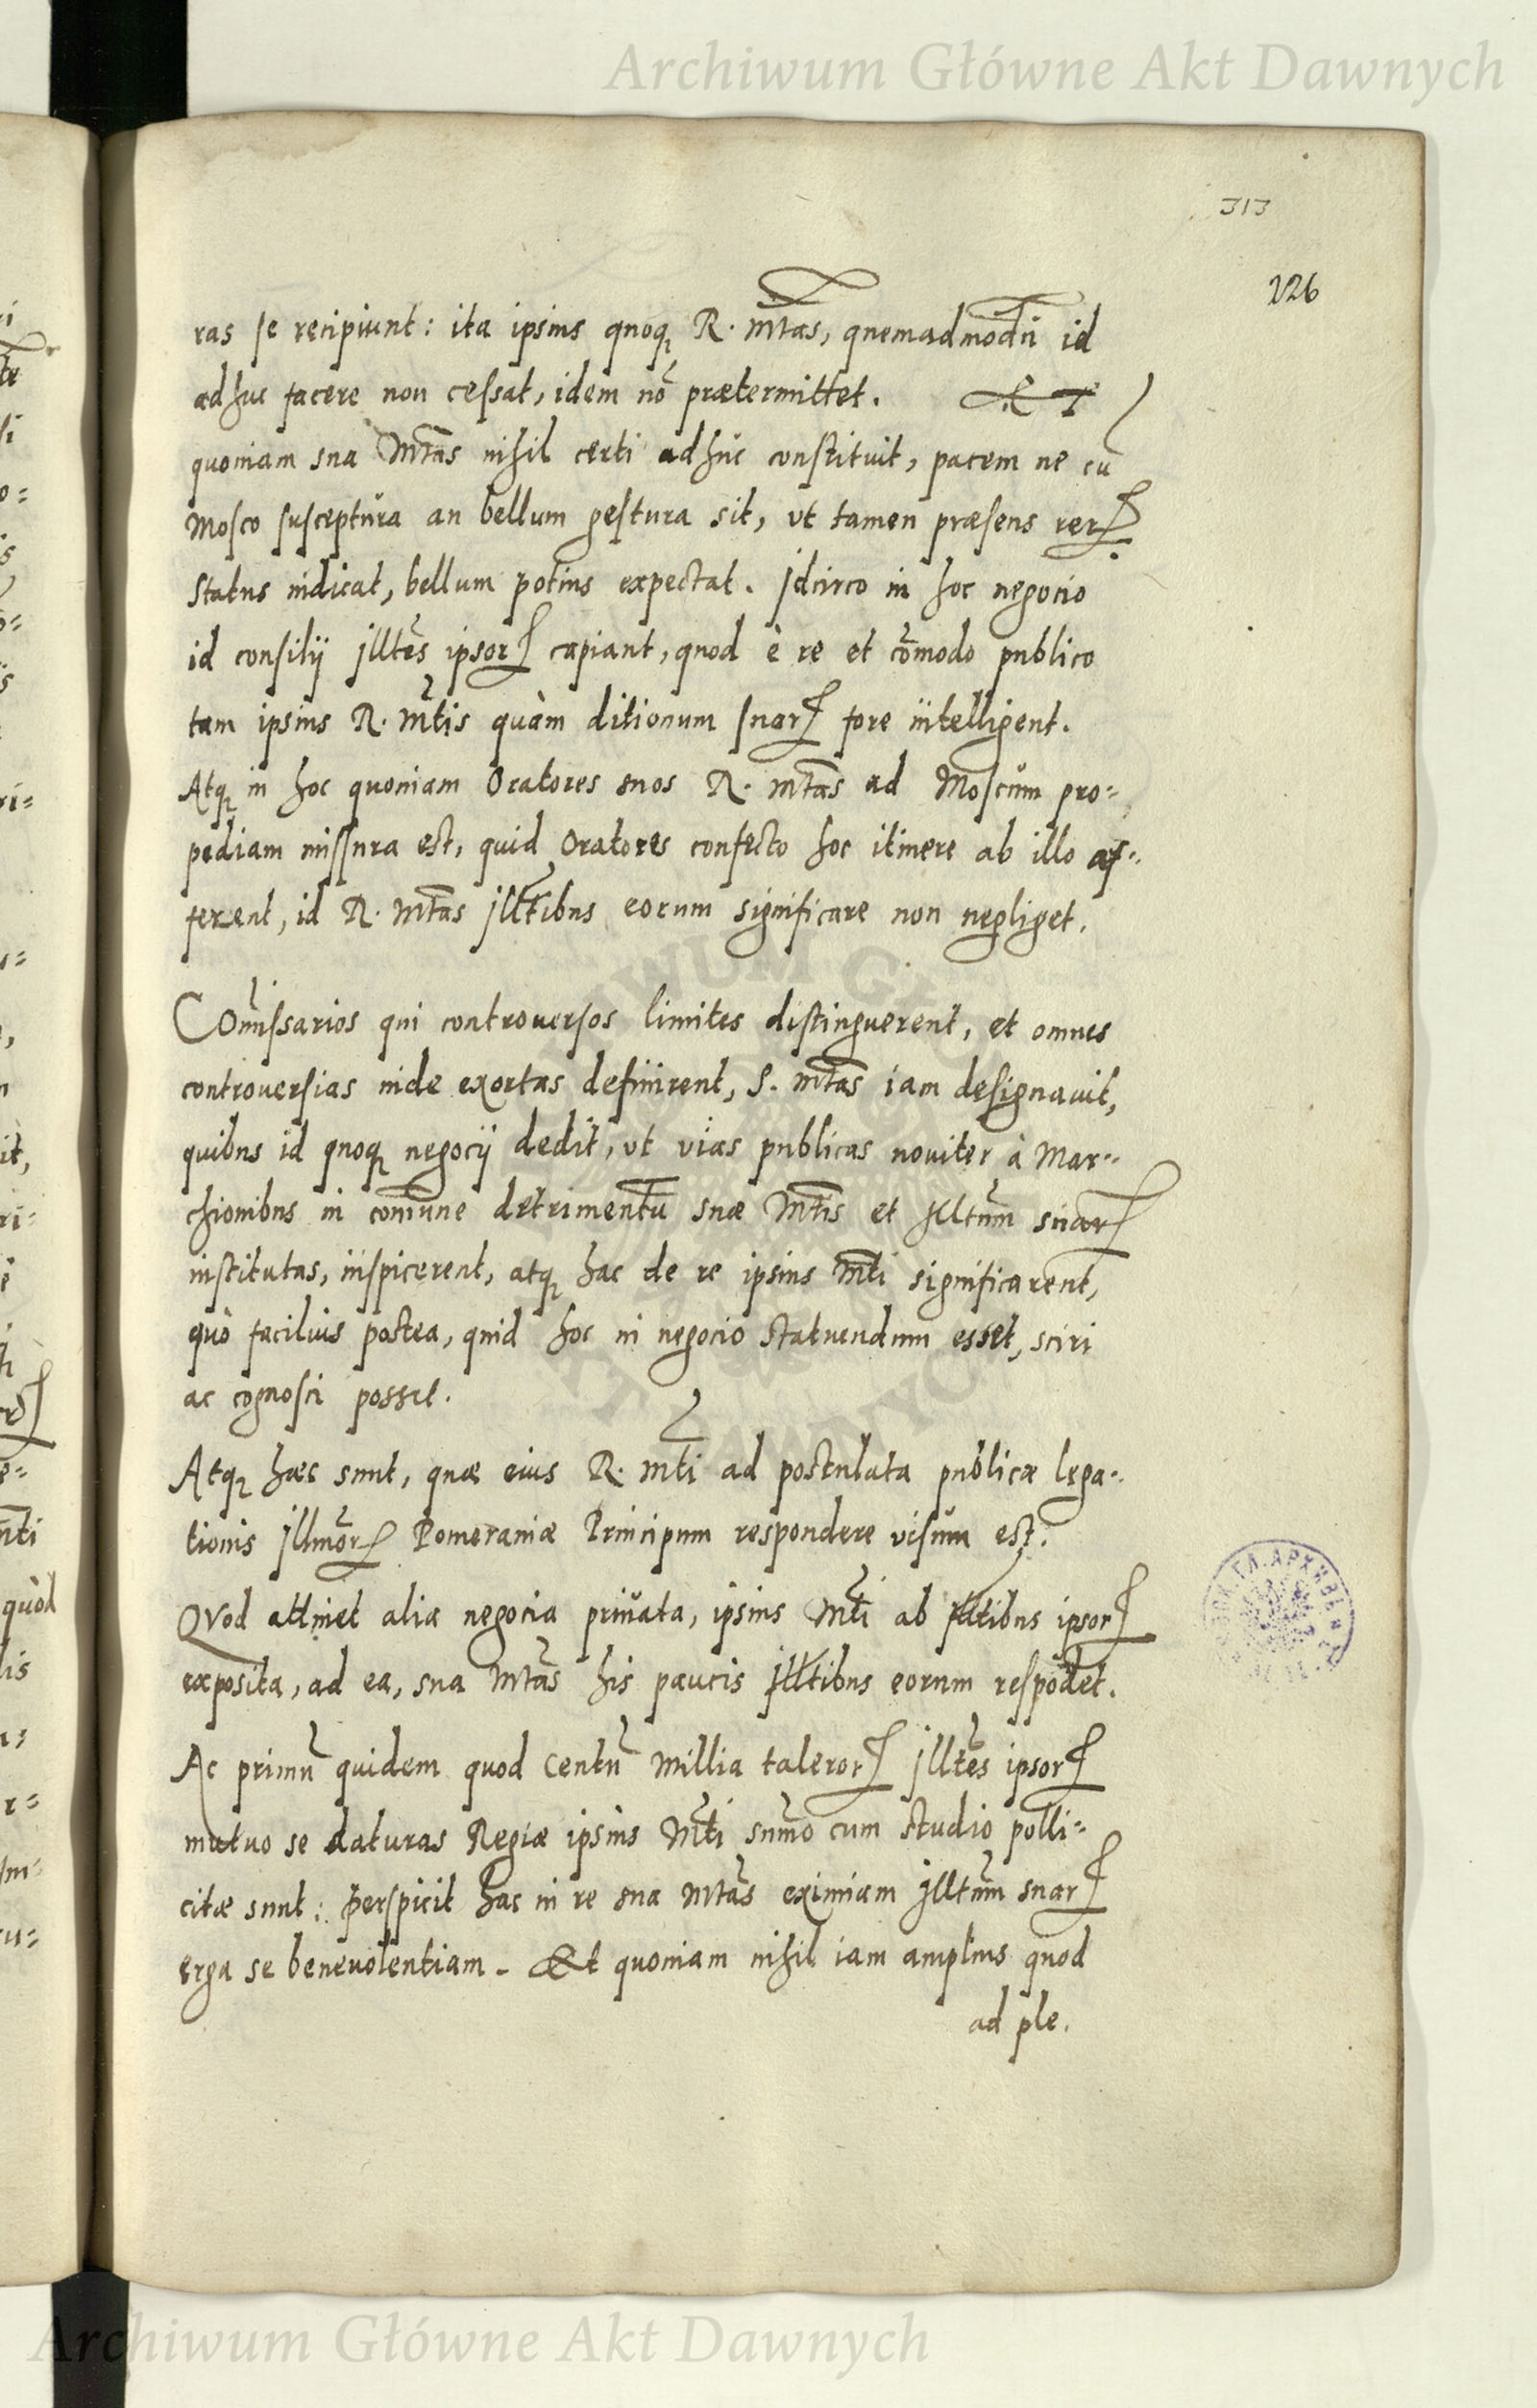 Archiwum Główne Akt Dawnych
313
226
ras se recipiunt: ita ipsius quoq R. Mtas, quemadmodū id
adhuc facere non cessat, idem nō prætermittet. ET
quoniam sua Mtas nihil certi adhuc constituit, pacem ne cū
Mosco susceptura an bellum gestura sit, vt tamen præsens rerꝝ
status indicat, bellum potius expectat. Idcirco in hoc negocio
id consilij Illtes ipsorꝝ capiant, quod è re et cōmodo publico
tam ipsius R. Mtis quàm ditionum suarꝝ fore intelligent.
Atq in hoc quoniam Oratores suos R. Mtas ad Moscum pro=
pediam missura est, quid Oratores confecto hoc itinere ab illo af=
ferent, id R. Mtas Illtibus eorum significare non negliget.
Cōmissarios qui controuersos limites distinguerent, et omnes
controuersias inde exortas definirent, S. Mtas iam designauit,
quibus id quoq negocij dedit, vt vias publicas nouiter à Mar=
chionibus in comune detrimentū suæ Mtis et Illtum suarꝝ
institutas, inspicerent, atq hac de re ipsius Mti significarent,
quò facilius postea, quid hoc in negocio statuendum esset, sciri
ac cognosci posset.
Atq hæc sunt, quæ eius R. Mti ad postulata publicæ lega=
tionis Illmorꝝ Pomeraniæ Principum respondere visum est.
QVod attinet alia negocia priuata, ipsius Mti ab Illtibus ipsorꝝ
exposita, ad ea, sua Mtas his paucis Illtibus eorum respōdet.
Ac primū quidem quod Centū Millia talerorꝝ Illtes ipsorꝝ
mutuo se daturas Regiæ ipsius Mti sumo cum studio polli=
citæ sunt: perspicit hac in re sua Mtas eximiam Illtum suarꝝ
erga se beneuolentiam. Et quoniam nihil iam amplius quod
ad ple.
Archiwum Główne Akt Dawnych